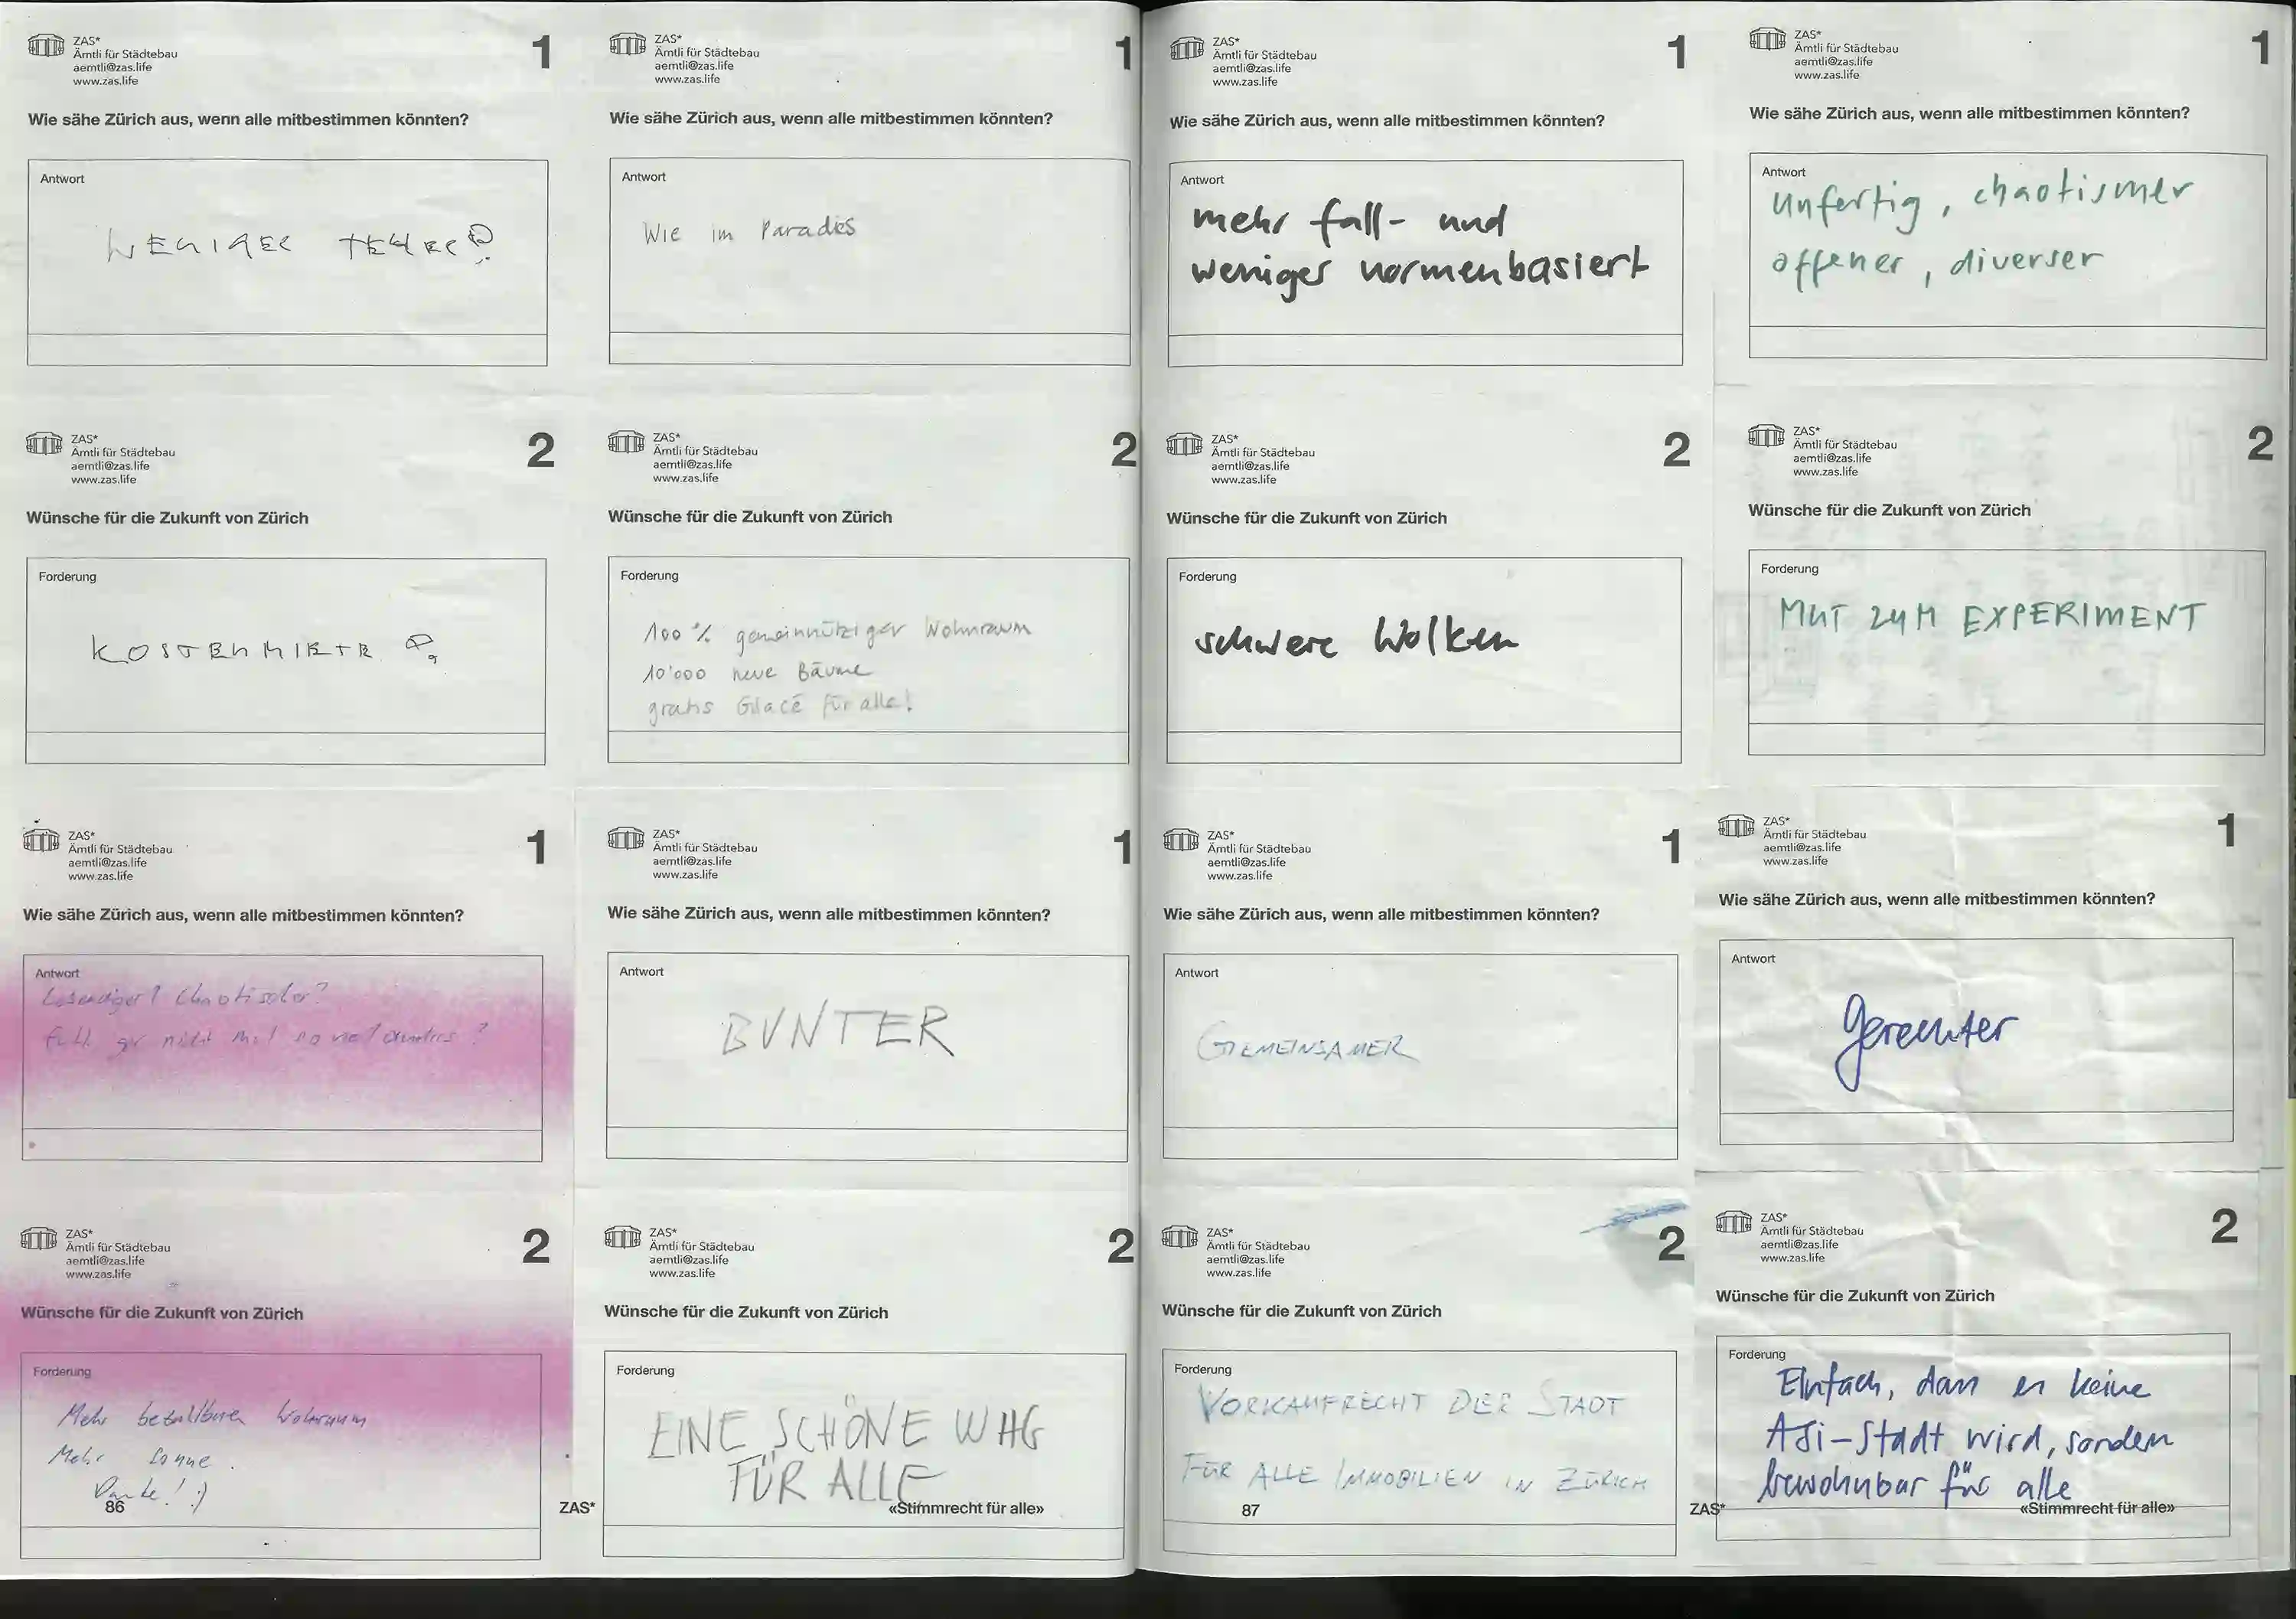 ZAS*
Ämtli für Städtebau
aemtli@zas.life
www.zas.life
1
Wie sähe Zürich aus, wenn alle mitbestimmen könnten?
Antwort
WENIGER TEUER?
ZAS*
Ämtli für Städtebau
aemtli@zas.life
www.zas.life
1
Wie sähe Zürich aus, wenn alle mitbestimmen könnten?
Antwort
Wie im Paradies
ZAS*
Ämtli für Städtebau
aemtli@zas.life
www.zas.life
1
Wie sähe Zürich aus, wenn alle mitbestimmen könnten?
Antwort
mehr fall- und
weniger normenbasiert
ZAS*
Ämtli für Städtebau
aemtli@zas.life
www.zas.life
1
Wie sähe Zürich aus, wenn alle mitbestimmen könnten?
Antwort
unfertig,
offener, diverser
ZAS*
Ämtli für Städtebau
aemtli@zas.life
www.zas.life
2
Wünsche für die Zukunft von Zürich
Forderung
KOSTENMIETE
ZAS*
Ämtli für Städtebau
aemtli@zas.life
www.zas.life
2
Wünsche für die Zukunft von Zürich
Forderung
100% gemeinnütziger Wohnraum
10'000 neue Bäume
gratis Glacé für alle!
ZAS*
Ämtli für Städtebau
aemtli@zas.life
www.zas.life
2
Wünsche für die Zukunft von Zürich
Forderung
schwere Wolken
ZAS*
Ämtli für Städtebau
aemtli@zas.life
www.zas.life
2
Wünsche für die Zukunft von Zürich
Forderung
MUT ZUM EXPERIMENT
ZAS*
Ämtli für Städtebau
aemtli@zas.life
www.zas.life
1
Wie sähe Zürich aus, wenn alle mitbestimmen könnten?
Antwort
Lebendiger? Chaotischer?
gar nicht mal so viel anders?
ZAS*
Ämtli für Städtebau
aemtli@zas.life
www.zas.life
1
Wie sähe Zürich aus, wenn alle mitbestimmen könnten?
Antwort
BUNTER
ZAS*
Ämtli für Städtebau
aemtli@zas.life
www.zas.life
1
Wie sähe Zürich aus, wenn alle mitbestimmen könnten?
Antwort
GEMEINSAMER
ZAS*
Ämtli für Städtebau
aemtli@zas.life
www.zas.life
1
Wie sähe Zürich aus, wenn alle mitbestimmen könnten?
Antwort
Gerechter
ZAS*
Ämtli für Städtebau
aemtli@zas.life
www.zas.life
2
Wünsche für die Zukunft von Zürich
Forderung
Mehr bezahlbarer Wohnraum
Mehr Sonne.
Danke! :)
86
ZAS*
ZAS*
Ämtli für Städtebau
aemtli@zas.life
www.zas.life
2
Wünsche für die Zukunft von Zürich
Forderung
EINE SCHÖNE WHG
FÜR ALLE
«Stimmrecht für alle»
ZAS*
Ämtli für Städtebau
aemtli@zas.life
www.zas.life
2
Wünsche für die Zukunft von Zürich
Forderung
VORKAUFRECHT DER STADT
FÜR ALLE IMMOBILIEN IN ZÜRICH
87
ZAS*
ZAS*
Ämtli für Städtebau
aemtli@zas.life
www.zas.life
2
Wünsche für die Zukunft von Zürich
Forderung
Einfach, dass es keine
Stadt wird, sondern
bewohnbar für alle
«Stimmrecht für alle»